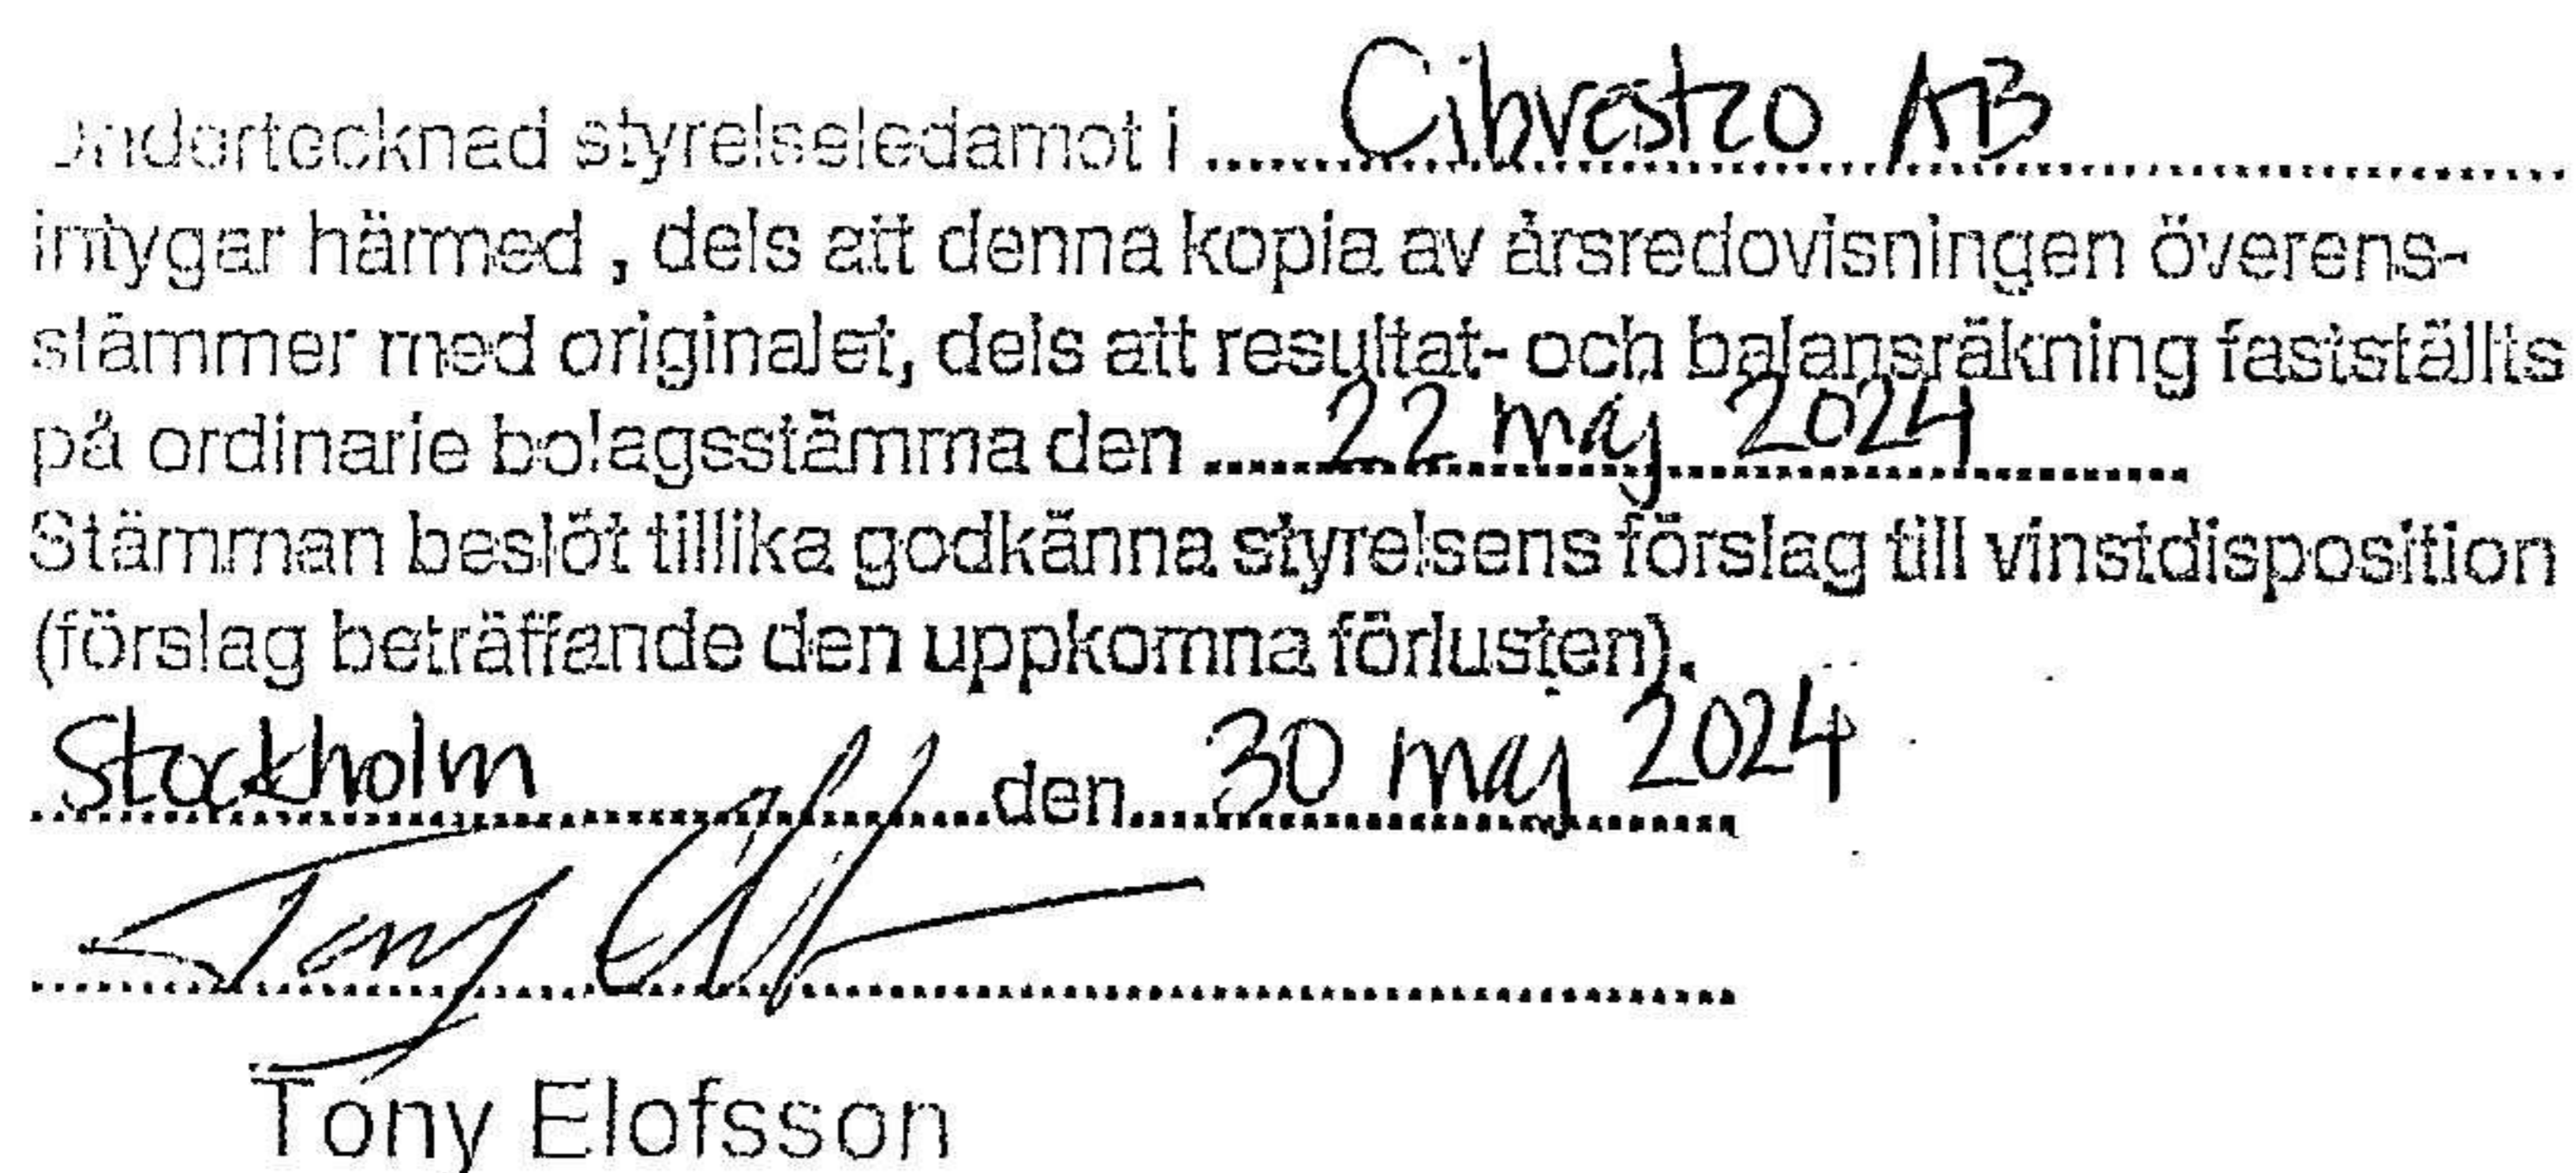 Undertecknad styrelseledamot i Cibvestro AB
intygar härmed , dels att denna kopia av årsredovisningen överens-
stämmer med originalet, dels att resultat- och balansräkning fastställts
på ordinarie bolagsstämma den 22 maj 2024
Stämman beslöt tillika godkänna styrelsens förslag till vinstdisposition
(förslag beträffande den uppkomna förlusten).
Stockholm den 30 maj 2024
Tony Elofsson